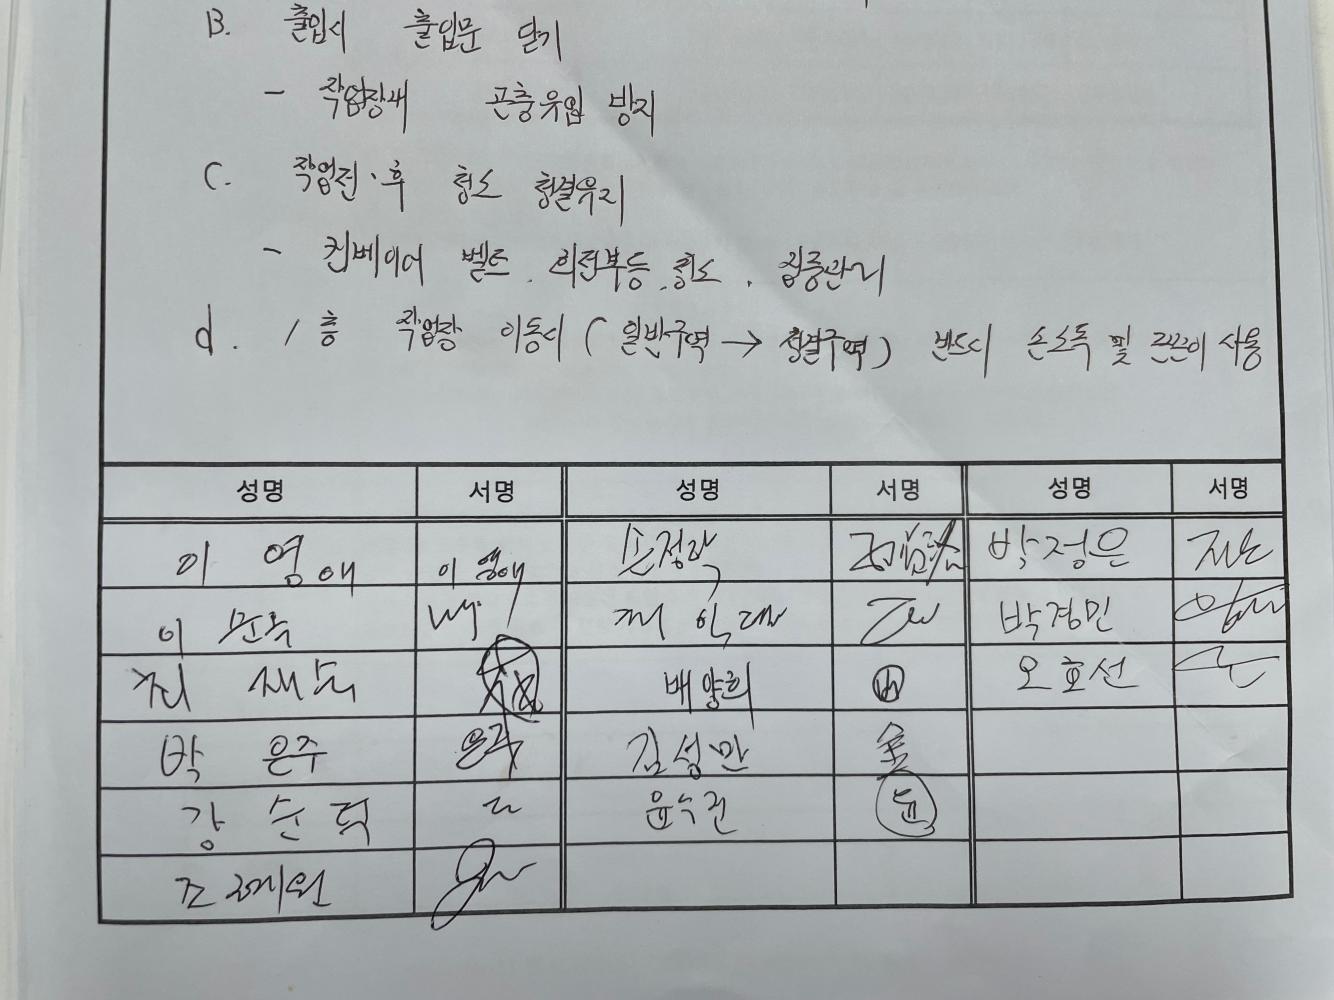 B. 출입시 출입문 닫기
- 작업장내 곤충유입 방지
C. 작업전·후 청소 청결유지
- 컨베이어 벨트, 회전부등, 청소, 집중관리
d. 1층 작업장 이동시 (일반구역 → 청결구역) 반드시 손소독 및 끈끈이 사용
성명 서명 성명 서명 성명 서명
이 영애 이 영애 손정락 박정은
이 박경민
배양희 오호선
박 은주 은주 김성만 金
강 순덕 윤수권 윤
조